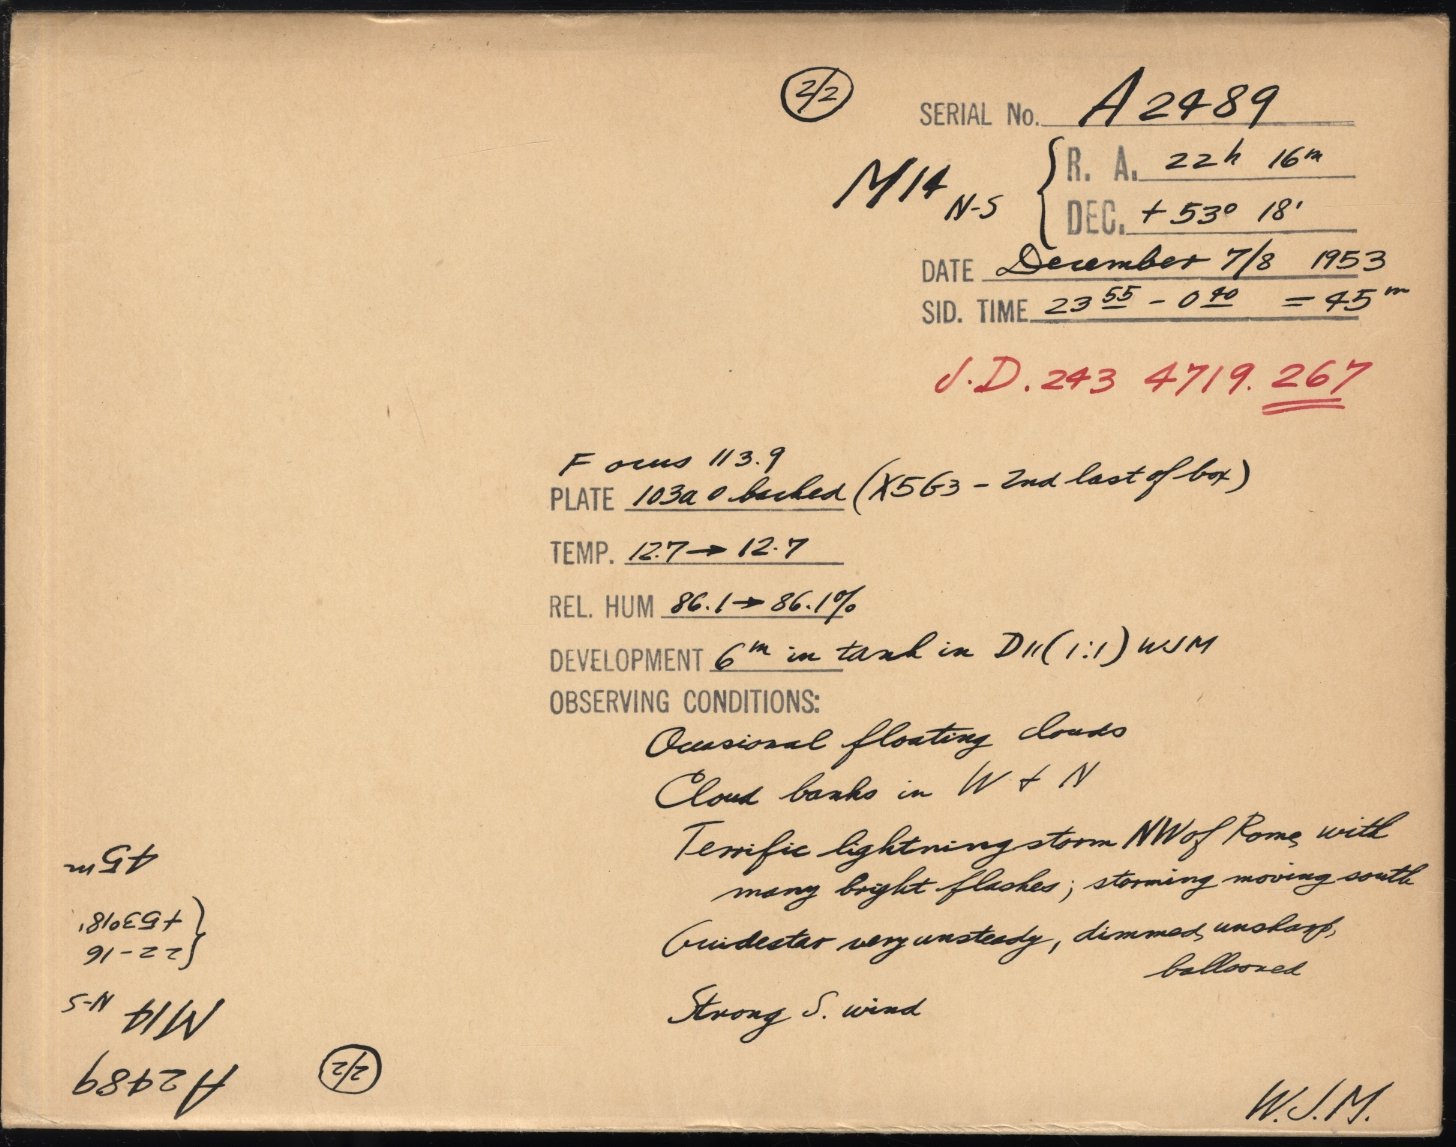 2/2
SERIAL No. A 2489
M14 N-S { R. A. 22h 16m
DEC. + 53° 18'
DATE December 7/8 1953
SID. TIME 23 55 - 0 40 = 45m
J.D. 243 4719.267
Focus 113.9
PLATE 103a O backed (X5G3 - 2nd last of box)
TEMP. 12.7 → 12.7
REL. HUM 86.1 → 86.1%
DEVELOPMENT 6m in tank in D11 (1:1) WJM
OBSERVING CONDITIONS:
Occasional floating clouds
Cloud banks in W + N
Terrific lightning storm NW of Rome, with
many bright flashes; storming moving south
Guidestar very unsteady, dimmed, unsharp,
ballooned
Strong S. wind
W.J.M.
2/2
A 2489
M14 N-S
{ 22-16
+53°18'
45m